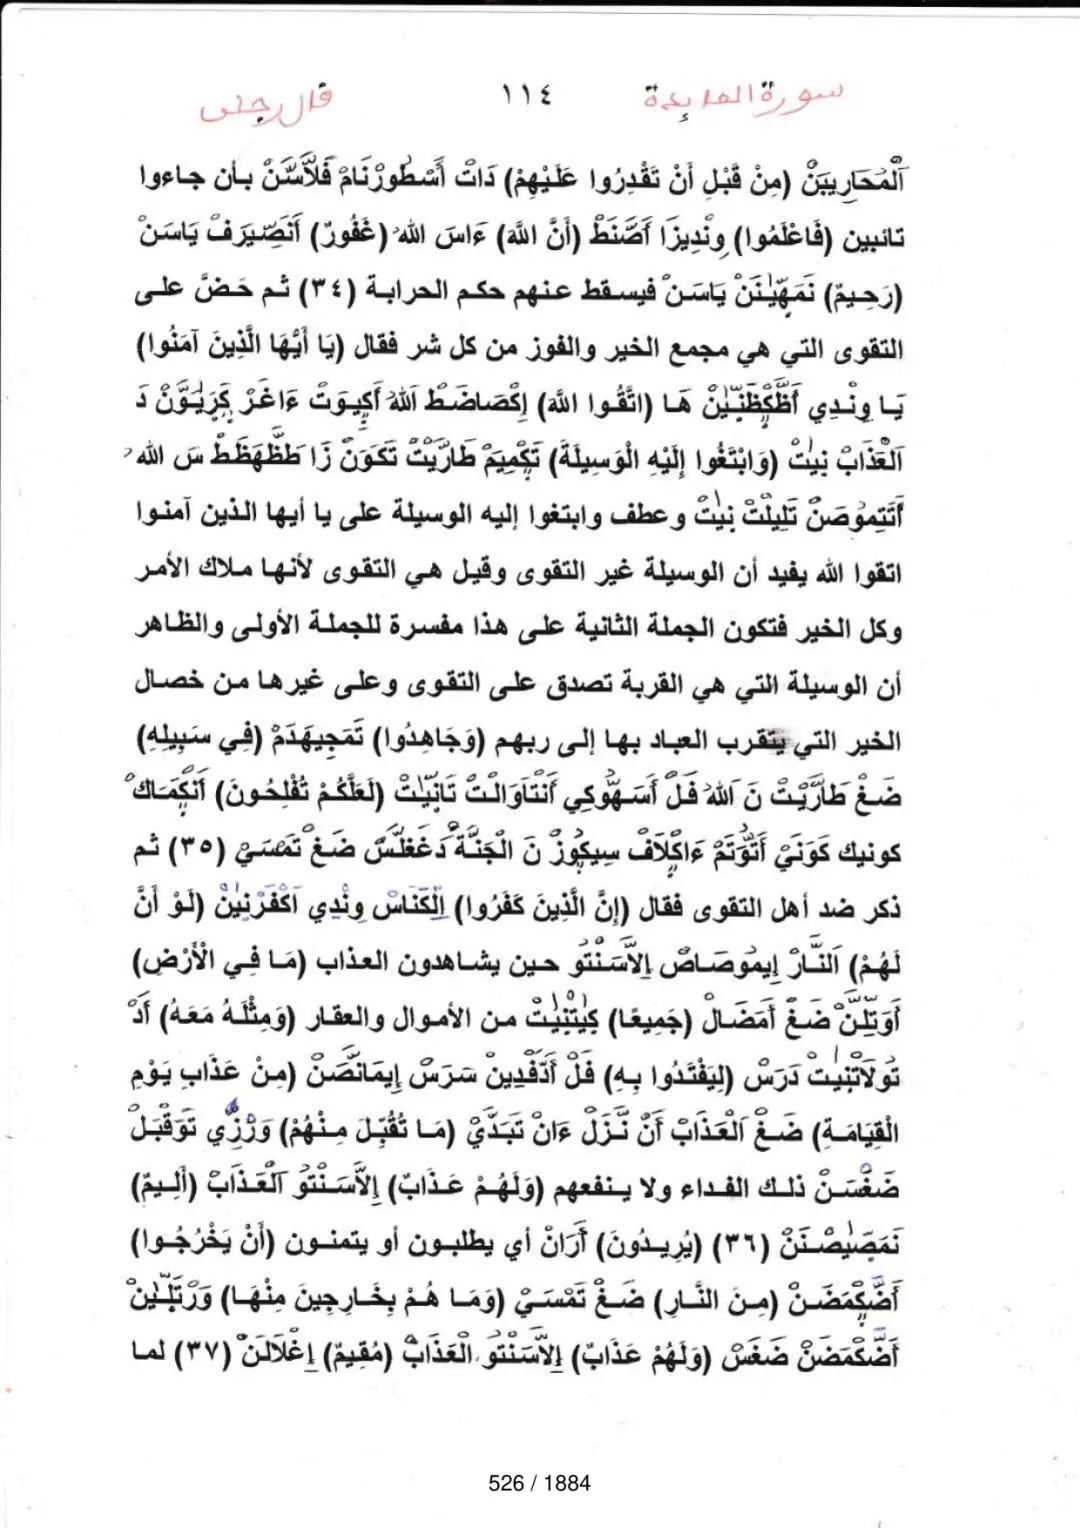 سورة المايدة ١١٤ قال رجلى
اَلْمُحَارِبِينَ (مِنْ قَبْلِ أَنْ تَقْدِرُوا عَلَيْهِمْ) دَاتْ أَسْطُورْنَامْ فَلَاّسَنْ بأن جاءوا
تائبين (فَاعْلَمُوا) وِنْدِيزَا أَضْنَطْ (أَنَّ اللَّهَ) ءَاسَ الله (غَفُورٌ) أَنَصِّيرَفْ يَاسَنْ
(رَحِيمٌ) نَمَهِّينَنْ يَاسَنْ فيسقط عنهم حكم الحرابة (٣٤) ثم حَضَّ على
التقوى التي هي مجمع الخير والفوز من كل شر فقال (يَا أَيُّهَا الَّذِينَ آمَنُوا)
يَا وِنْدِي هَا (اتَّقُوا اللَّهَ) إِكْصَاضَطْ اَللهْ أَكِيوَتْ ءَاغَرْ دَ
اَلْعَذَابْ نِيتْ (وَابْتَغُوا إِلَيْهِ الْوَسِيلَةَ) تَكْمِيمْ طَارَّيْتْ تَكَوَنْ زَا سَ الله
تَلِيلْتْ نِيتْ وعطف وابتغوا إليه الوسيلة على يا أيها الذين آمنوا
اتقوا الله يفيد أن الوسيلة غير التقوى وقيل هي التقوى لأنها ملاك الأمر
وكل الخير فتكون الجملة الثانية على هذا مفسرة للجملة الأولى والظاهر
أن الوسيلة التي هي القربة تصدق على التقوى وعلى غيرها من خصال
الخير التي يتقرب العباد بها إلى ربهم (وَجَاهِدُوا) تَمَجِيهَدَمْ (فِي سَبِيلِهِ)
ضَغْ طَارَّيْتْ نَ اَللهْ فَلْ أَسَهُّوكِي أَنْتَاوَالْتْ تَانِّيتْ (لَعَلَّكُمْ تُفْلِحُونَ) أَنْكِمَاكْ
كونيك كَوَنَيْ أَتَوَّتَمْ ءَاكْلَافْ سِيكُوزْ نَ الْجَنَّةْ دَغْغَلَسْ ضَغْ تَمَسَيْ (٣٥) ثم
ذكر ضد أهل التقوى فقال (إِنَّ الَّذِينَ كَفَرُوا) اِلْكَنَاسْ وِنْدِي اَكْفَرْنِينْ (لَوْ أَنَّ
لَهُمْ) اَلنَّارْ إِيمُوصَاصْ إِلَاّسَنْتُو حين يشاهدون العذاب (مَا فِي الْأَرْضِ)
أَوَتِلَّنْ ضَغْ أَمَضَالْ (جَمِيعًا) كِيتْنِيتْ من الأموال والعقار (وَمِثْلَهُ مَعَهُ) أَدْ
تُولَاتْنِيتْ دَرَسْ (لِيَفْتَدُوا بِهِ) فَلْ أَدَّفْدِينْ سَرَسْ إِيمَانَّصَنْ (مِنْ عَذَابِ يَوْمِ
الْقِيَامَةِ) ضَغْ اَلْعَذَابْ أَنْ نَزَلْ ءَانْ تَبَدَّيْ (مَا تُقُبِّلَ مِنْهُمْ) وَرْزِّي تَوَقْبَلْ
ضَغْسَنْ ذلك الفداء ولا ينفعهم (وَلَهُمْ عَذَابٌ) إِلَاّسَنْتُو اَلْعَذَابْ (أَلِيمٌ)
نَمَصِّيصْنَنْ (٣٦) (يُرِيدُونَ) أَرَانْ أي يطلبون أو يتمنون (أَنْ يَخْرُجُوا)
أَضَّكْمَضَنْ (مِنَ النَّارِ) ضَغْ تَمْسَيْ (وَمَا هُمْ بِخَارِجِينَ مِنْهَا) وَرْتَلِّينْ
أَضَّكْمَضَنْ ضَغَسْ (وَلَهُمْ عَذَابٌ) إِلَاّسَنْتُو اَلْعَذَابْ (مُقِيمٌ) إِغْلَالَنْ (٣٧) لما
526 / 1884